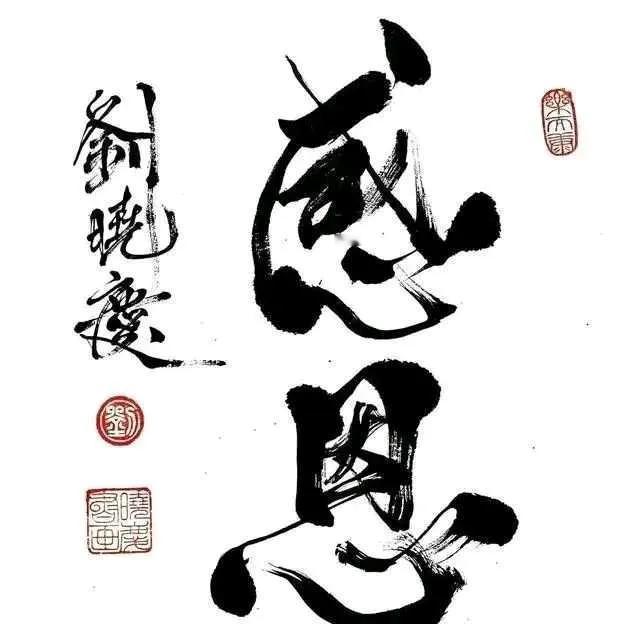 感恩
劉曉慶
劉
曉慶書画